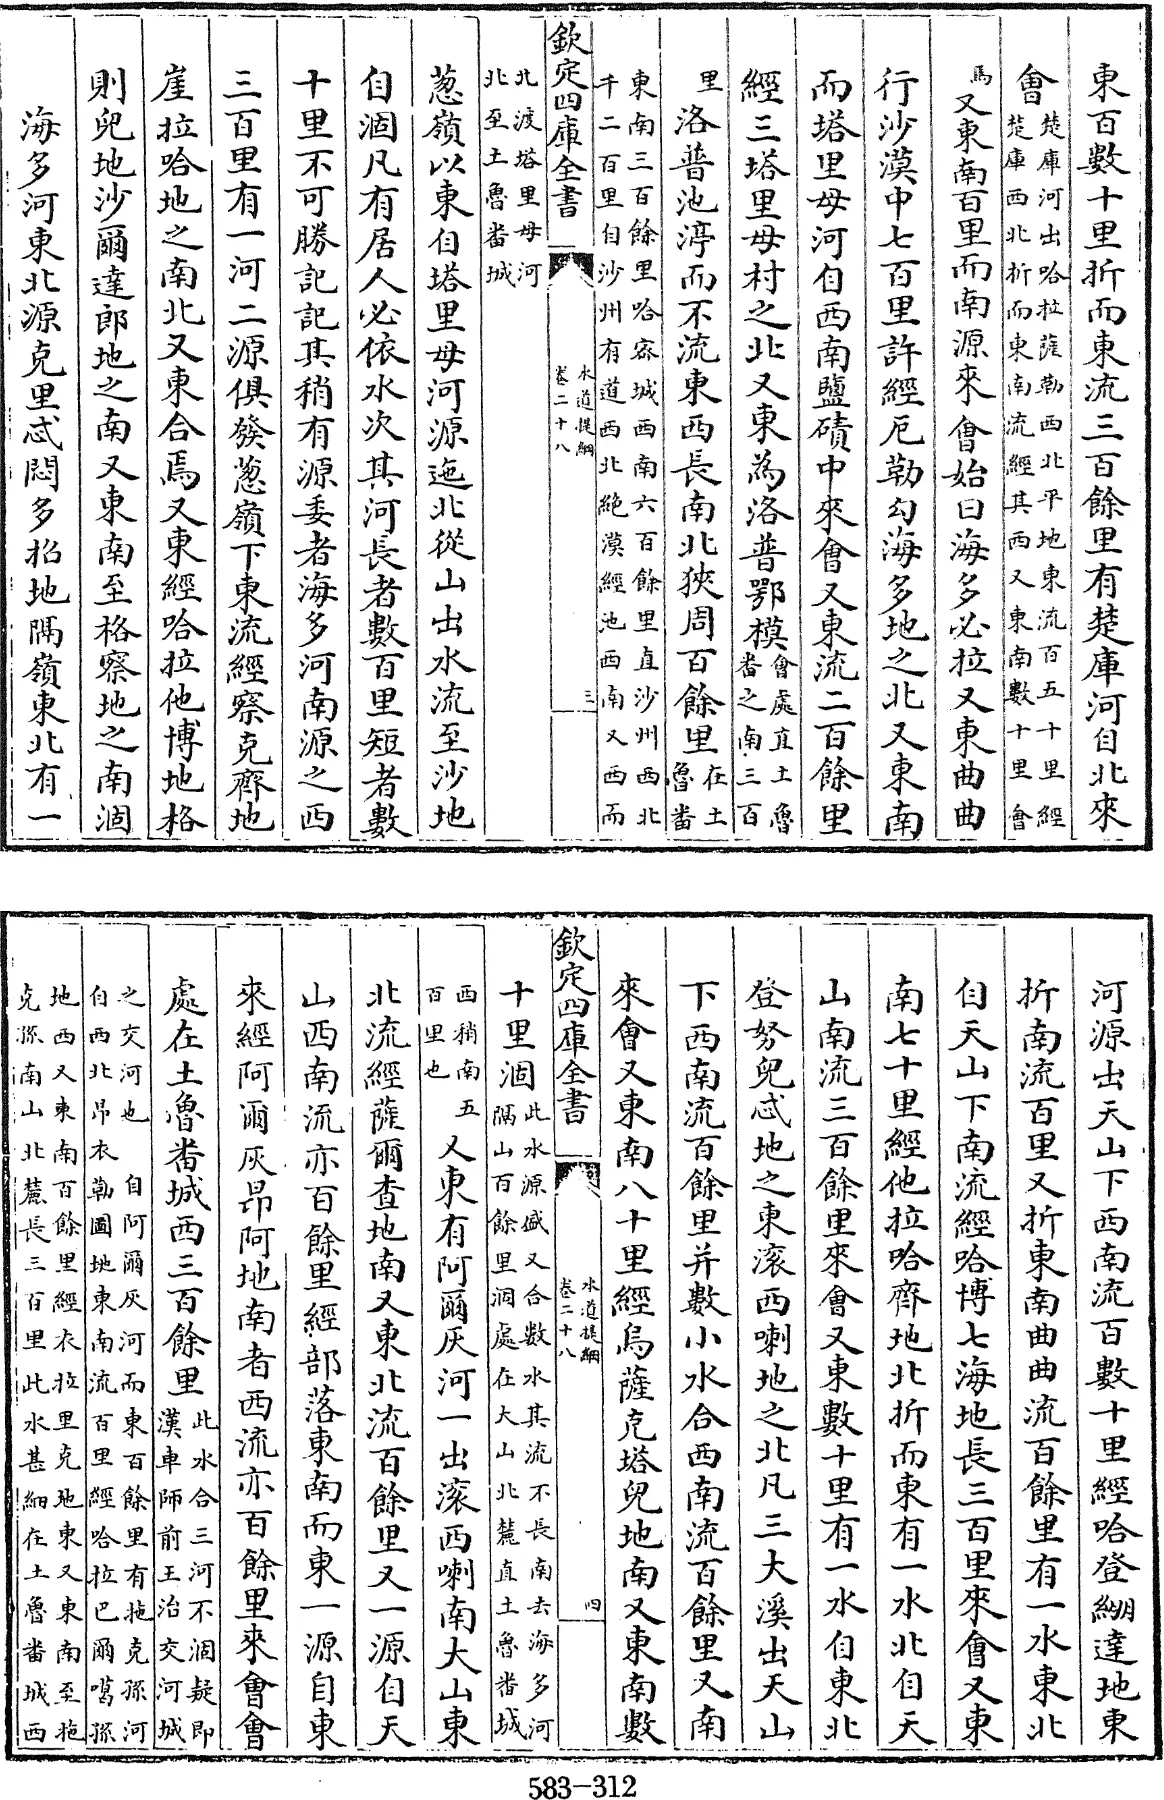 東百數十里折而東流三百餘里有楚庫河自北來
會楚庫河出哈拉薩勒西北平地東流百五十里經楚庫西北折而東南流經其西又東南數十里會
焉又東南百里而南源來會始曰海多必拉又東曲曲
行沙漠中七百里許經厄勒勾海多地之北又東南
而塔里母河自西南鹽磧中來會又東流二百餘里
經三塔里母村之北又東為洛普鄂模會處直土魯番之南三百
里洛普池渟而不流東西長南北狹周百餘里在土魯番
東南三百餘里哈宻城西南六百餘里直沙州西北千二百里自沙州有道西北絶漠經池西南又西而
欽定四庫全書
水道提綱
卷二十八
三
北渡塔里母河北至土魯番城
葱嶺以東自塔里母河源迤北從山出水流至沙地
自涸凡有居人必依水次其河長者數百里短者數
十里不可勝記記其稍有源委者海多河南源之西
三百里有一河二源俱發葱嶺下東流經察克齊地
崖拉哈地之南北又東合焉又東經哈拉他博地格
則兒地沙爾達郎地之南又東南至格察地之南涸
海多河東北源克里忒悶多招地隔嶺東北有一
河源出天山下西南流百數十里經哈登綳達地東
折南流百里又折東南曲曲流百餘里有一水東北
自天山下南流經哈博七海地長三百里來會又東
南七十里經他拉哈齊地北折而東有一水北自天
山南流三百餘里來會又東數十里有一水自東北
登努兒忒地之東滚西喇地之北凡三大溪出天山
下西南流百餘里并數小水合西南流百餘里又南
來會又東南八十里經烏薩克塔兒地南又東南數
欽定四庫全書
水道提綱
卷二十八
四
十里涸此水源盛又合數水其流不長南去海多河隔山百餘里涸處在大山北麓直土魯番城
西稍南五百里也又東有阿爾灰河一出滚西喇南大山東
北流經薩爾查地南又東北流百餘里又一源自天
山西南流亦百餘里經部落東南而東一源自東
來經阿爾灰昂阿地南者西流亦百餘里來會會
處在土魯番城西三百餘里此水合三河不涸疑即漢車師前王治交河城
之交河也自阿爾灰河而東百餘里有拖克孫河自西北昂衣勒圖地東南流百里經哈拉巴爾噶孫
地西又東南百餘里經衣拉里克地東又東南至拖克孫南山北麓長三百里此水甚細在土魯番城西
583-312